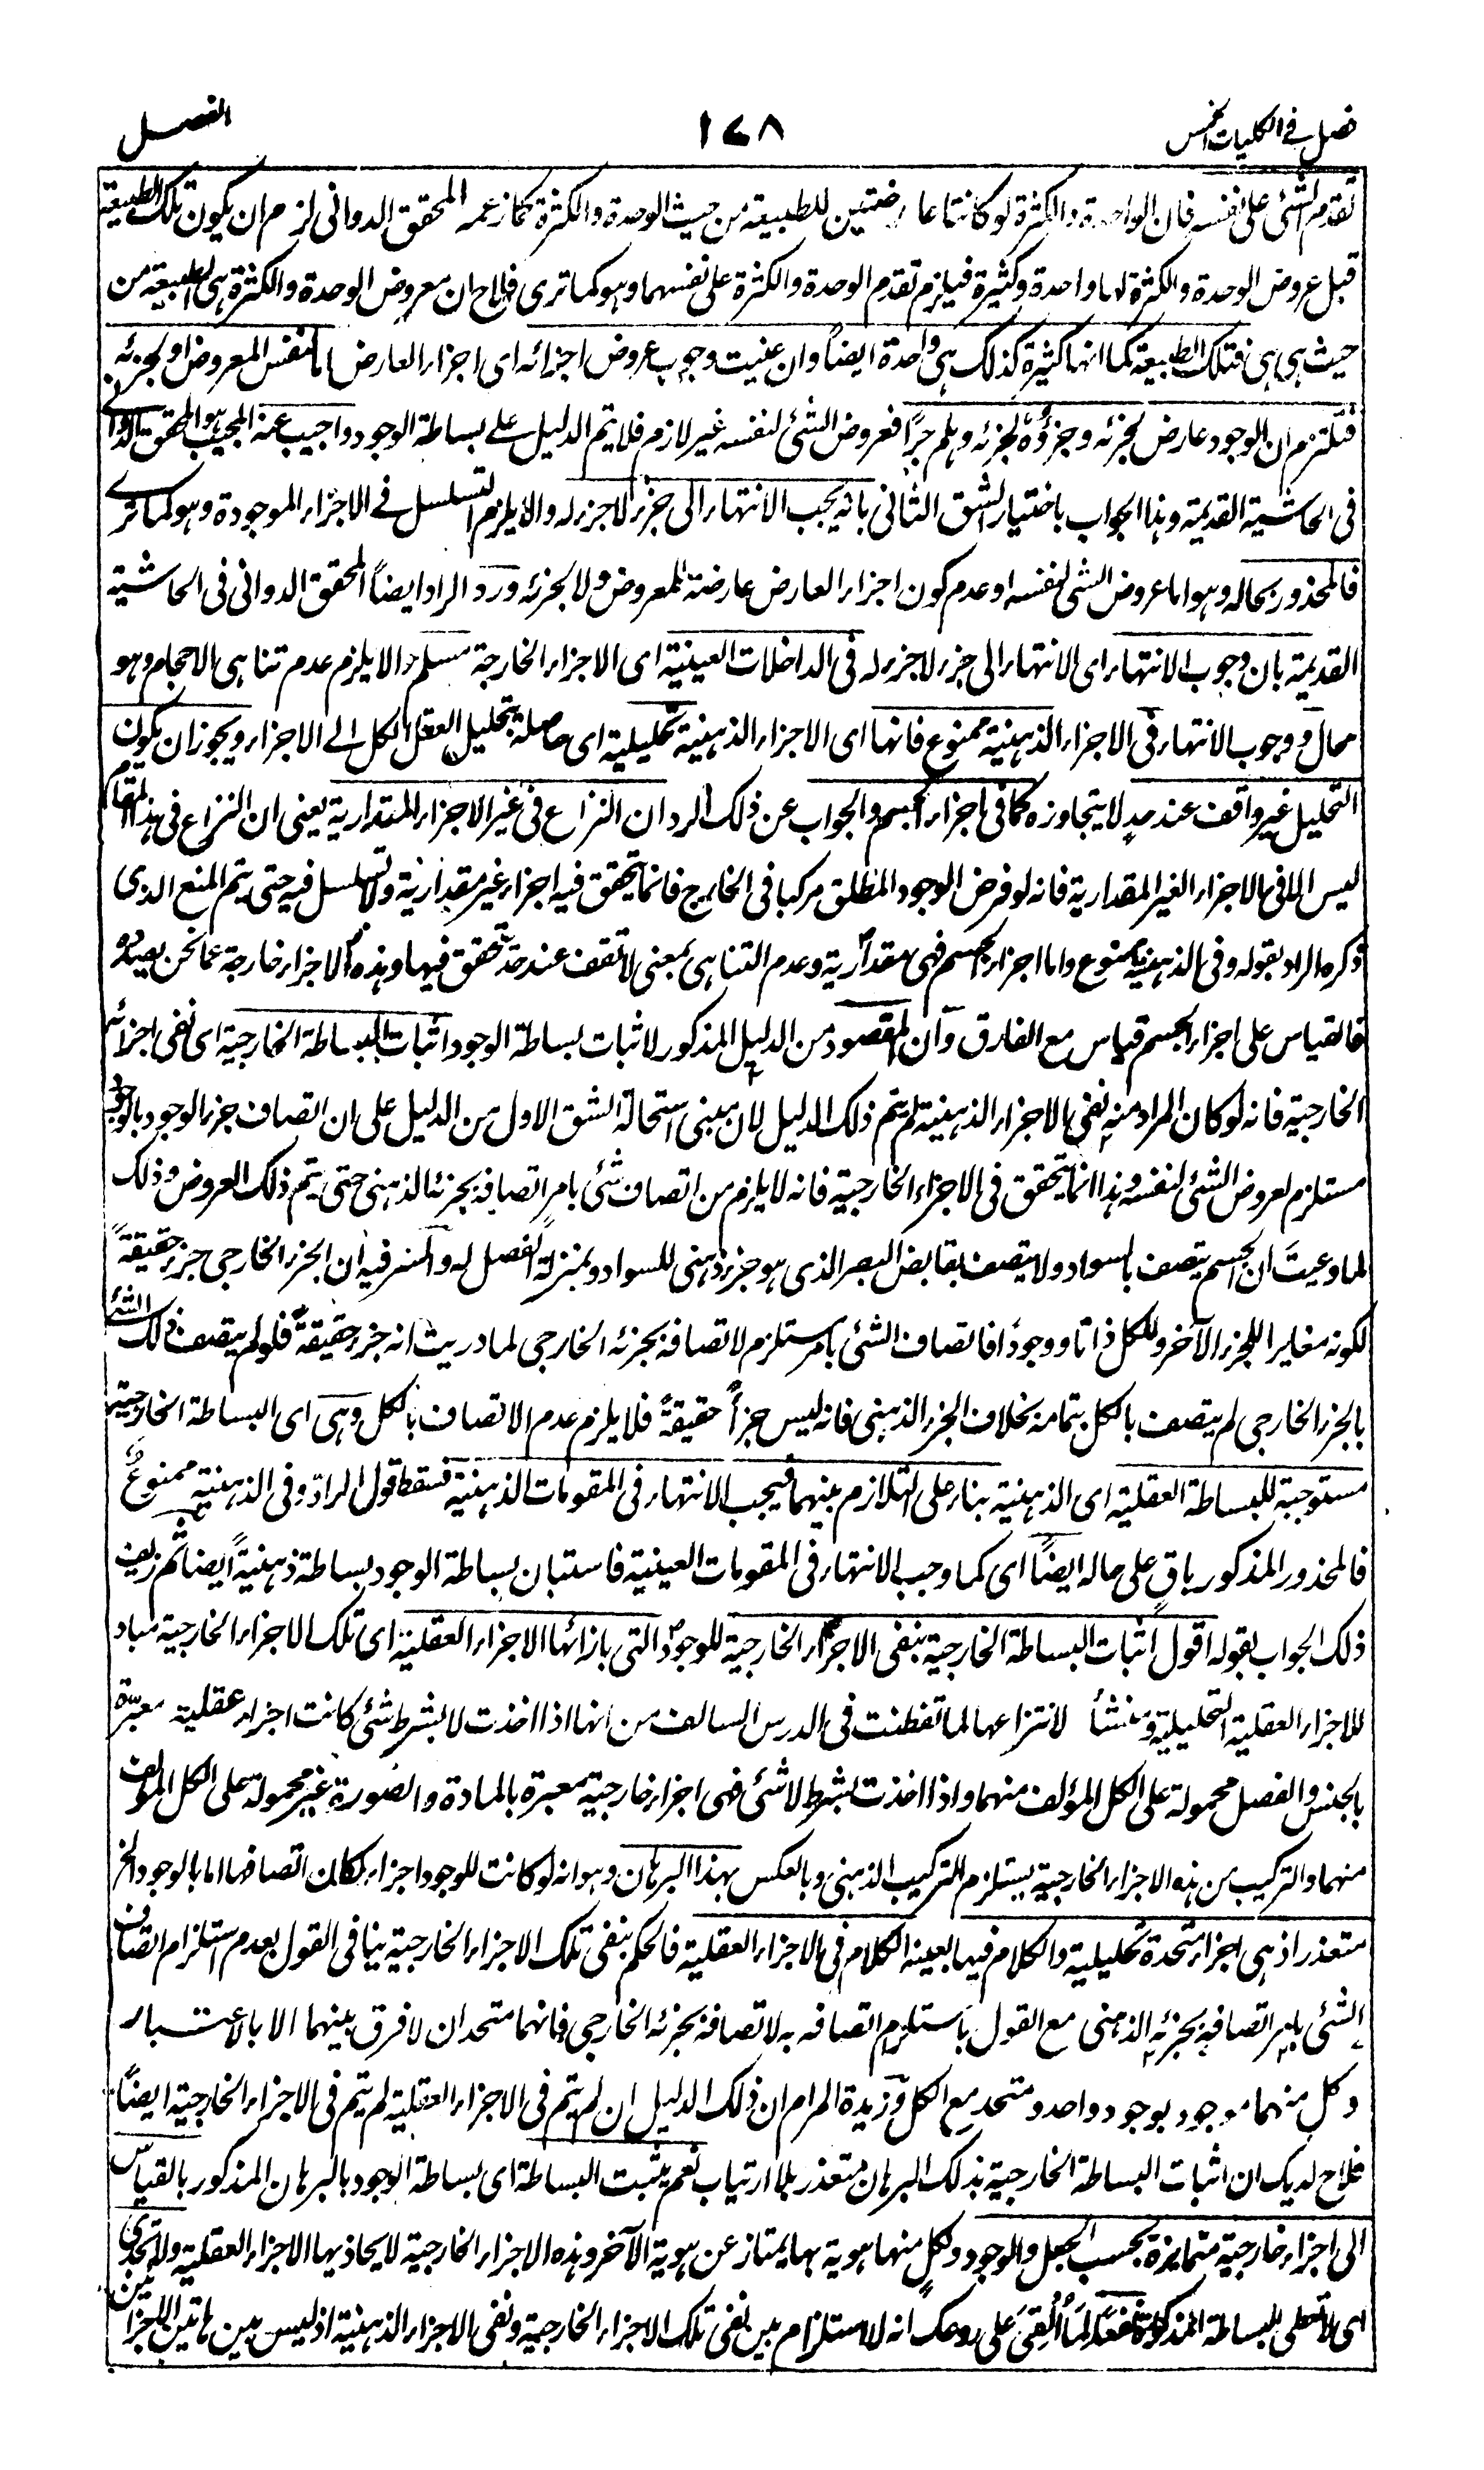 فصل فى الكليات الخمس
١٧٨
الفصل
تقدم الشئ على نفسه فان الواحدة والكثرة لو كانتا عارضتين للطبيعة من حيث الوحدة والكثرة كما زعمه المحقق الدوانى لزم ان يكون تلك الطبيعة
قبل عروض الوحدة والكثرة لها واحدة وكثيرة فيلزم تقدم الوحدة والكثرة على نفسهما وهو كما ترى فلاح ان معروض الوحدة والكثرة هى الطبيعة من
حيث هى هى فتلك الطبيعة كما انها كثيرة كذلك هى واحدة ايضاً وان عنيت وجوب عروض اجزائه اى اجزاء العارض اما لنفس المعروض او لجزئه
فنلتزم ان الوجود عارض لجزئه وجزؤه لجزئه وهلم جراً فعروض الشئ لنفسه غير لازم فلا يتم الدليل على بساطة الوجود واجيب عنه المجيب هو المحقق الدوانى
فى الحاشية القديمة وهذا الجواب باختيار الشق الثانى بانه يجب الانتهاء الى جزء لا جزء له والا يلزم التسلسل فى الاجزاء الموجودة وهو كما ترى
فالمحذور بحاله وهو اما عروض الشئ لنفسه او عدم كون اجزاء العارض عارضة للمعروض ولا لجزئه ورد الراد ايضاً المحقق الدوانى فى الحاشية
القديمة بان وجوب الانتهاء اى الانتهاء الى جزء لا جزء له فى الداخلات العينية اى الاجزاء الخارجة مسلم والا يلزم عدم تناهى الاحجام وهو
محال ووجوب الانتهاء فى الاجزاء الذهنية ممنوع فانها اى الاجزاء الذهنية تحليلية اى حاصلة بتحليل العقل الكل الى الاجزاء ويجوز ان يكون
التحليل غير واقف عند حدٍ لا يتجاوزه كما فى اجزاء الجسم والجواب عن ذلك الرد ان النزاع فى غير الاجزاء المقدارية يعنى ان النزاع فى هذا المقام
ليس الا فى الاجزاء الغير المقدارية فانه لو فرض الوجود المطلق مركبا فى الخارج فانما يتحقق فيه اجزاء غير مقدارية ولا تسلسل فيه حتى يتم المنع الذى
ذكره الراد بقوله وفى الذهنية ممنوع واما اجزاء الجسم فهى مقدارية وعدم التناهى بمعنى لا تقف عند حد تحقق فيها وهذه الاجزاء خارجة عما نحن بصدده
فالقياس على اجزاء الجسم قياس مع الفارق وان المقصود من الدليل المذكور لاثبات بساطة الوجود اثبات البساطة الخارجية اى نفى اجزائه
الخارجية فانه لو كان المراد منه نفى الاجزاء الذهنية لم يتم ذلك الدليل لان مبنى استحالة الشق الاول من الدليل على ان اتصاف جزء الوجود بالوجود
مستلزم لعروض الشئ لنفسه وهذا انما يتحقق فى الاجزاء الخارجية فانه لا يلزم من اتصاف شئ بامرٍ اتصافه بجزئه الذهنى حتى يتم ذلك العروض وذلك
لما وعيت ان الجسم يتصف بالسواد ولا يتصف بقابض البصر الذى هو جزء ذهنى للسواد وبمنزلة الفصل له والسر فيه ان الجزء الخارجى جزء حقيقةً
لكونه مغايرا للجزء الآخر وللكل ذاتا ووجوداً فاتصاف الشئ بامر مستلزم لاتصافه بجزئه الخارجى لما دريت انه جزء حقيقة فلو لم يتصف ذلك الشئ
بالجزء الخارجى لم يتصف بالكل بتمامه بخلاف الجزء الذهنى فانه ليس جزأً حقيقةً فلا يلزم عدم الاتصاف بالكل وهى اى البساطة الخارجية
مستوجبة للبساطة العقلية اى الذهنية بناء على التلازم بينهما فيجب الانتهاء فى المقومات الذهنية فسقط قول الراد وفى الذهنية ممنوعٌ
فالمحذور المذكور باقٍ على حاله ايضاً اى كما وجب الانتهاء فى المقومات العينية فاستبان بساطة الوجود بساطة ذهنيةً ايضا ثم زيف
ذلك الجواب بقوله اقول اثبات البساطة الخارجية بنفى الاجزاء الخارجية للوجود التى بازائها الاجزاء العقلية اى تلك الاجزاء الخارجية مباد
للاجزاء العقلية التحليلية ومنشأ لانتزاعها لما تفطنت فى الدرس السالف من انها اذا اخذت لا بشرط شئ كانت اجزاء عقلية معبرة
بالجنس والفصل محمولة على الكل المؤلف منهما واذا اخذت بشرط لا شئ فهى اجزاء خارجية معبرة بالمادة والصورة غير محمولة على الكل المؤلف
منهما والتركيب من هذه الاجزاء الخارجية يستلزم التركيب الذهنى وبالعكس بهذا البرهان وهو انه لو كانت للوجود اجزاء لكان اتصافها اما بالوجود الخ
متعذر اذ هى اجزاء متحدة تحليلية والكلام فيها بعينه الكلام فى الاجزاء العقلية فالحكم بنفى تلك الاجزاء الخارجية ينافى القول بعدم استلزام اتصاف
الشئ بامر اتصافه بجزئه الذهنى مع القول باستلزام اتصافه به لاتصافه بجزئه الخارجى فانهما متحدان لا فرق بينهما الا بالاعتبار
وكل منهما موجود بوجود واحد ومتحد مع الكل وزبدة المرام ان ذلك الدليل ان لم يتم فى الاجزاء العقلية لم يتم فى الاجزاء الخارجية ايضاً
فلاح لديك ان اثبات البساطة الخارجية بذلك البرهان متعذر بلا ارتياب نعم يثبت البساطة اى بساطة الوجود بالبرهان المذكور بالقياس
الى اجزاء خارجية متمايزة بحسب الجعل والوجود ولكلٍ منها هوية بها يمتاز عن هوية الآخر وهذه الاجزاء الخارجية لا يحاذيها الاجزاء العقلية ولا تجدى
اى لا تعطى البساطة المذكورة نفعاً لما القى على روعك انه لا استلزام بين نفى تلك الاجزاء الخارجية ونفى الاجزاء الذهنية اذ ليس بين هاتين الاجزائين